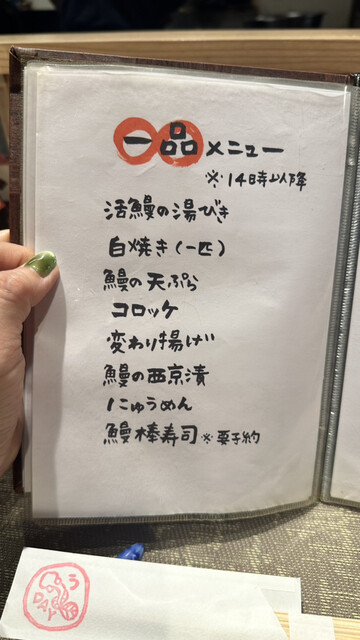 一品メニュー
※14時以降
活鰻の湯びき
白焼き(一匹)
鰻の天ぷら
コロッケ
変わり揚げ
鰻の西京漬
にゅうめん
鰻棒寿司※要予約
う
DAY